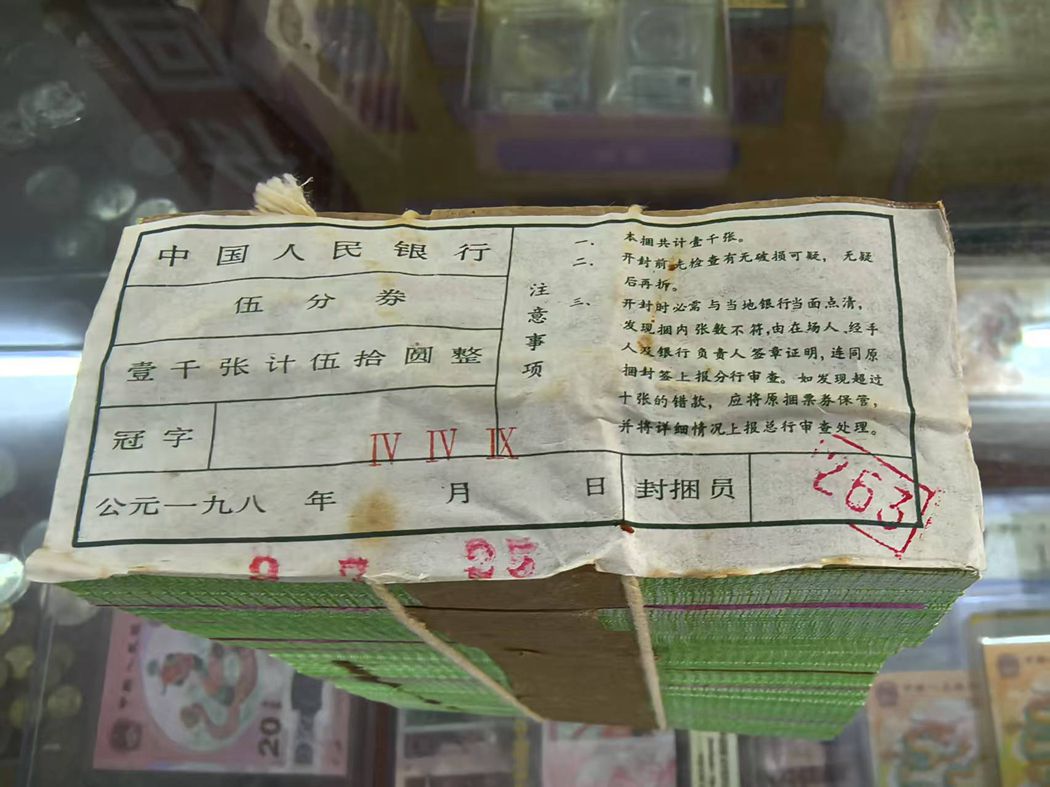 中国人民银行
伍分券
壹千张计伍拾圆整
冠字
IV IV IX
公元一九八 年 月 日
封捆员
263
注意事项
一、本捆共计壹千张。
二、开封前先检查有无破损可疑，无疑
后再拆。
三、开封时必需与当地银行当面点清，
发现捆内张数不符，由在场人、经手
人及银行负责人签章证明，连同原
捆封签上报分行审查。如发现超过
十张的错款，应将原捆票券保管，
并将详细情况上报总行审查处理。
25
20